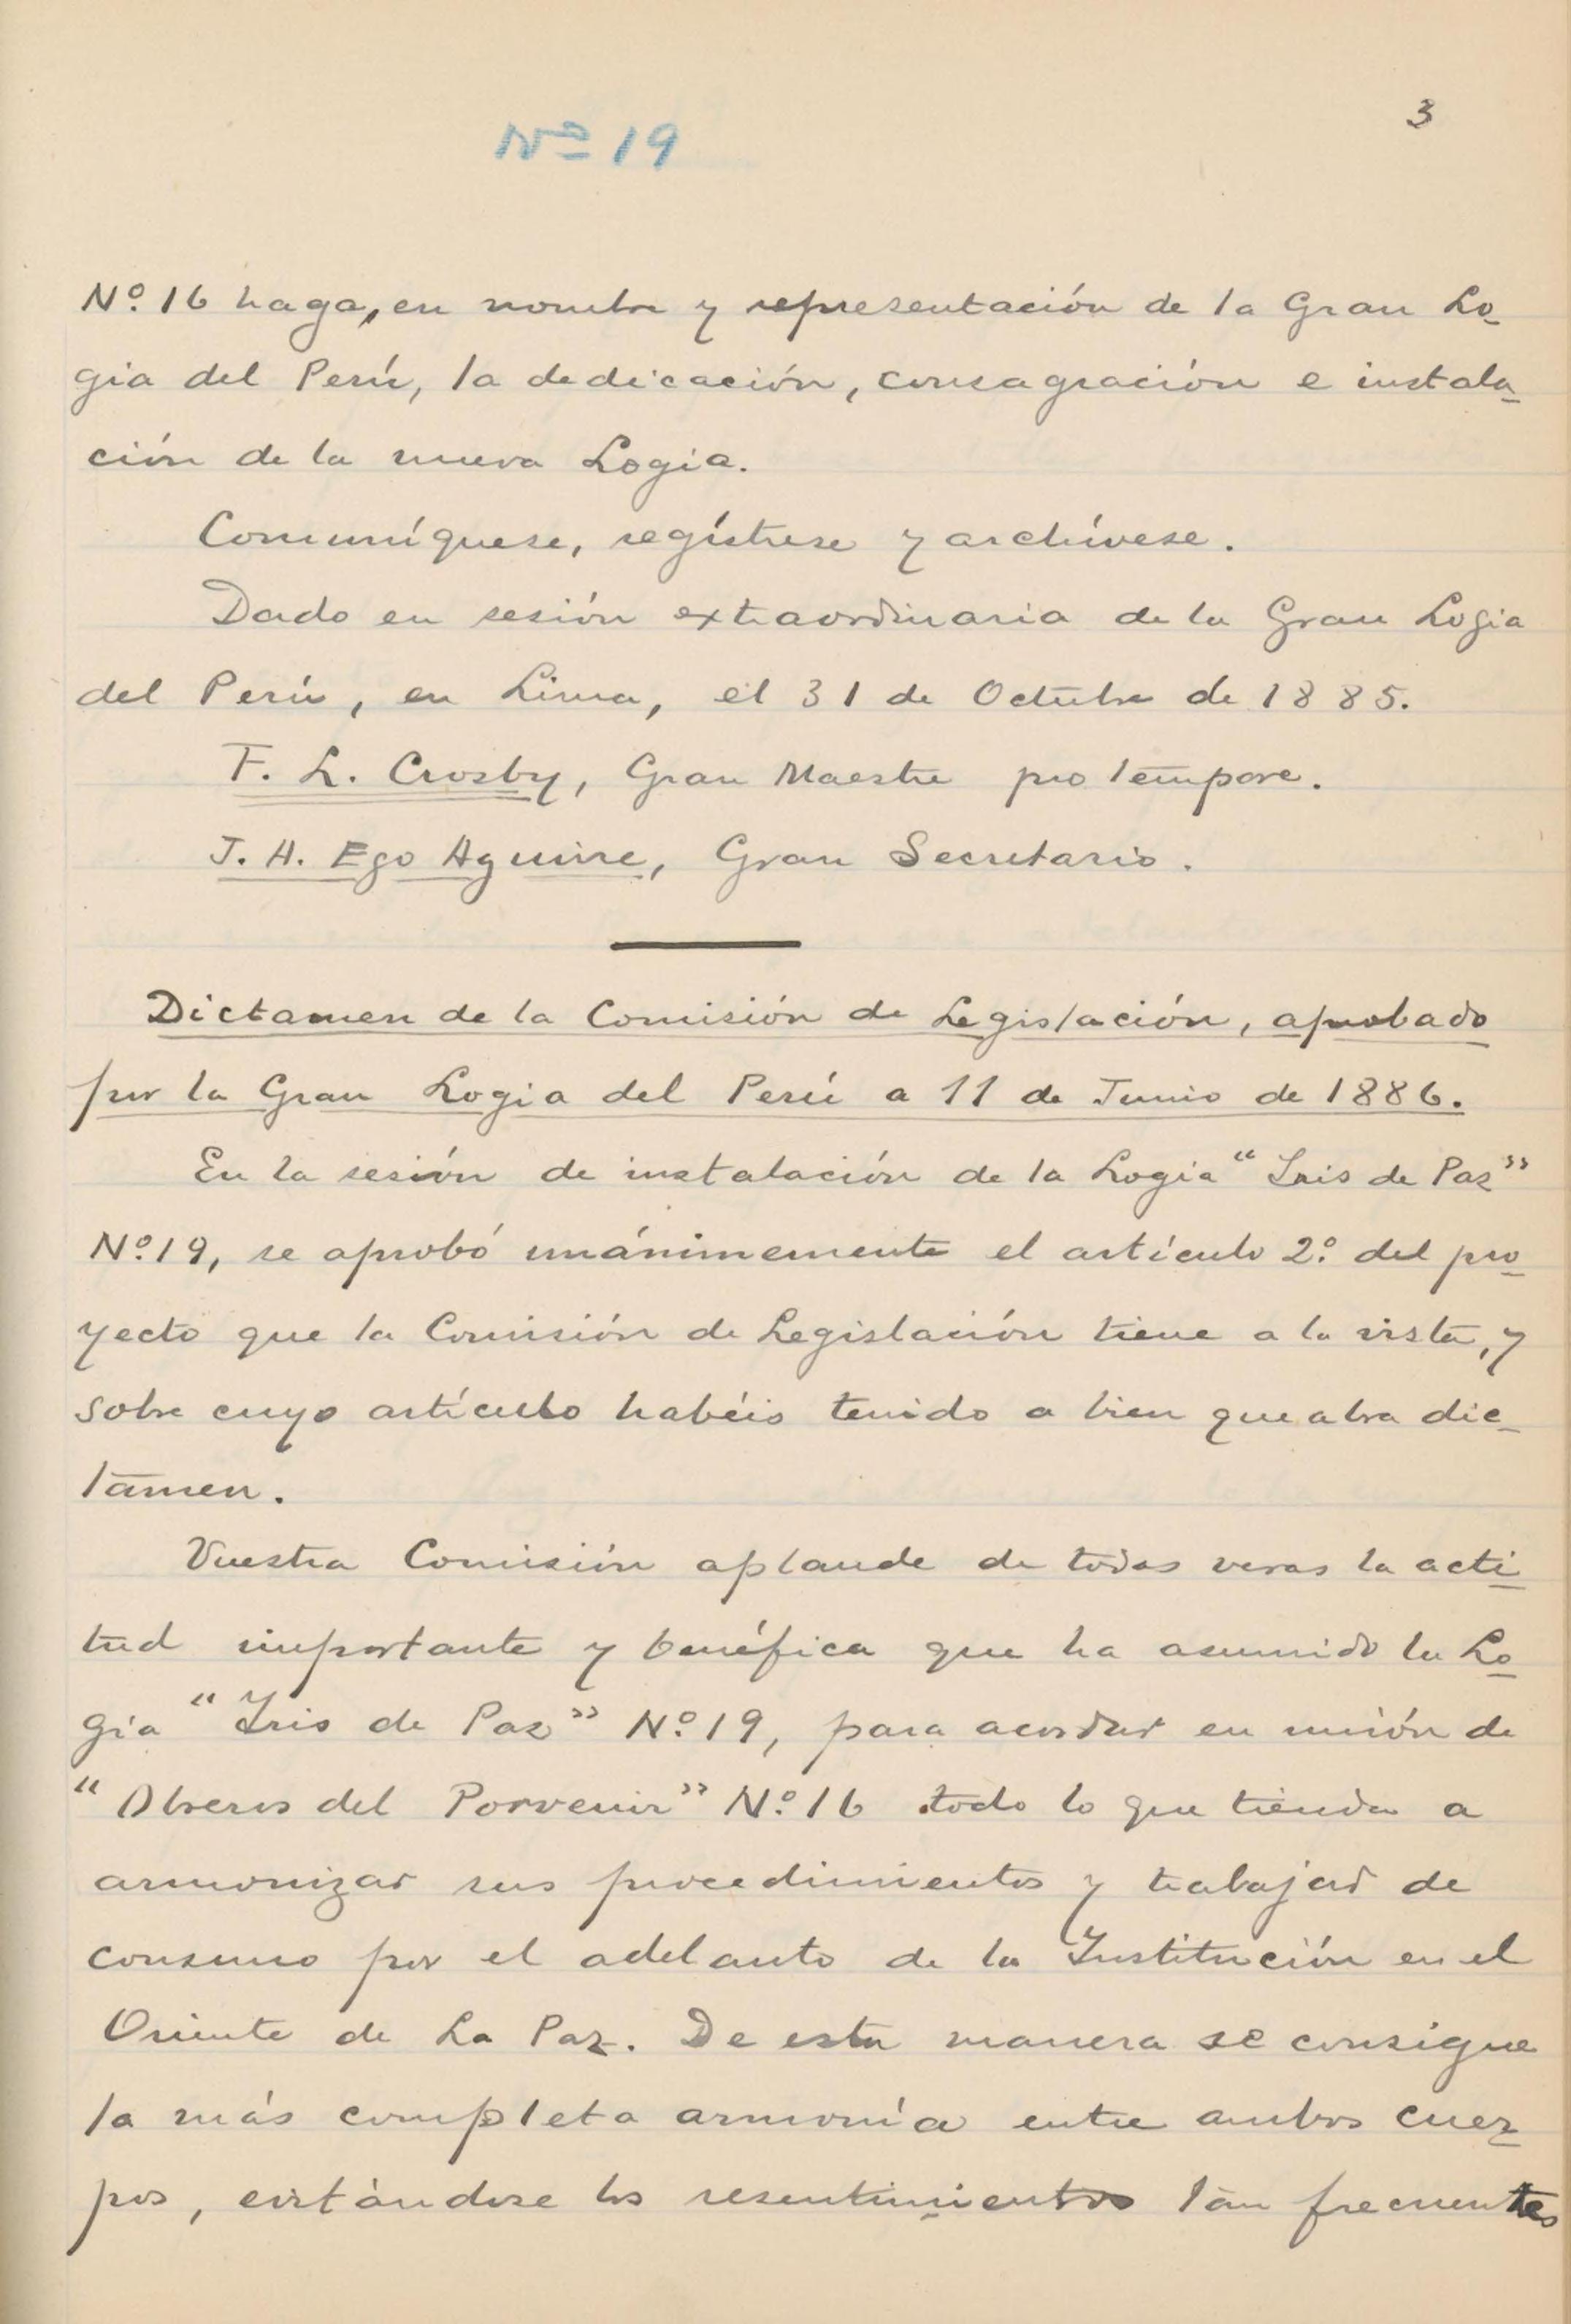 3
Nº 19
Nº. 16 haga, en nombre y representación de la Gran Lo-
gia del Perú, la dedicación, consagración e instala-
ción de la nueva Logia.
Comuníquese, regístrese y archívese.
Dado en sesión extraordinaria de la Gran Logia
del Perú, en Lima, el 31 de Octubre de 1885.
F. L. Crosby, Gran Maestre pro tempore.
J. A. Ego Aguirre, Gran Secretario.
Dictamen de la Comisión de Legislación, aprobado
por la Gran Logia del Perú a 11 de Junio de 1886.
En la sesión de instalación de la Logia "Iris de Paz"
Nº. 19, se aprobó unánimemente el artículo 2º. del pro-
yecto que la Comisión de Legislación tiene a la vista, y
sobre cuyo artículo habéis tenido a bien que abra dic-
tamen.
Vuestra Comisión aplaude de todas veras la acti-
tud importante y benéfica que ha asumido la Lo-
gia "Iris de Paz" Nº. 19, para acordar en unión de
"Obreros del Porvenir" Nº. 16 todo lo que tienda a
armonizar sus procedimientos y trabajar de
consuno por el adelanto de la Institución en el
Oriente de La Paz. De esta manera se consigue
la más completa armonía entre ambos cuer-
pos, evitándose los resentimientos tan frecuentes